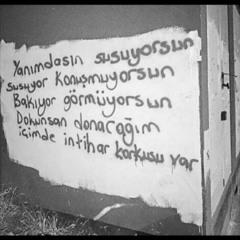 Yanımdasın susuyorsun
susuyor Konuşmuyorsun
Bakıyor görmüyorsun
Dokunsan donacağım
içimde intihar korkusu var